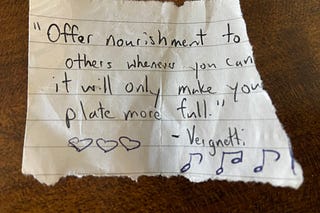 "Offer nourishment to
others whenever you can
it will only make your
plate more full."
- Vergnetti